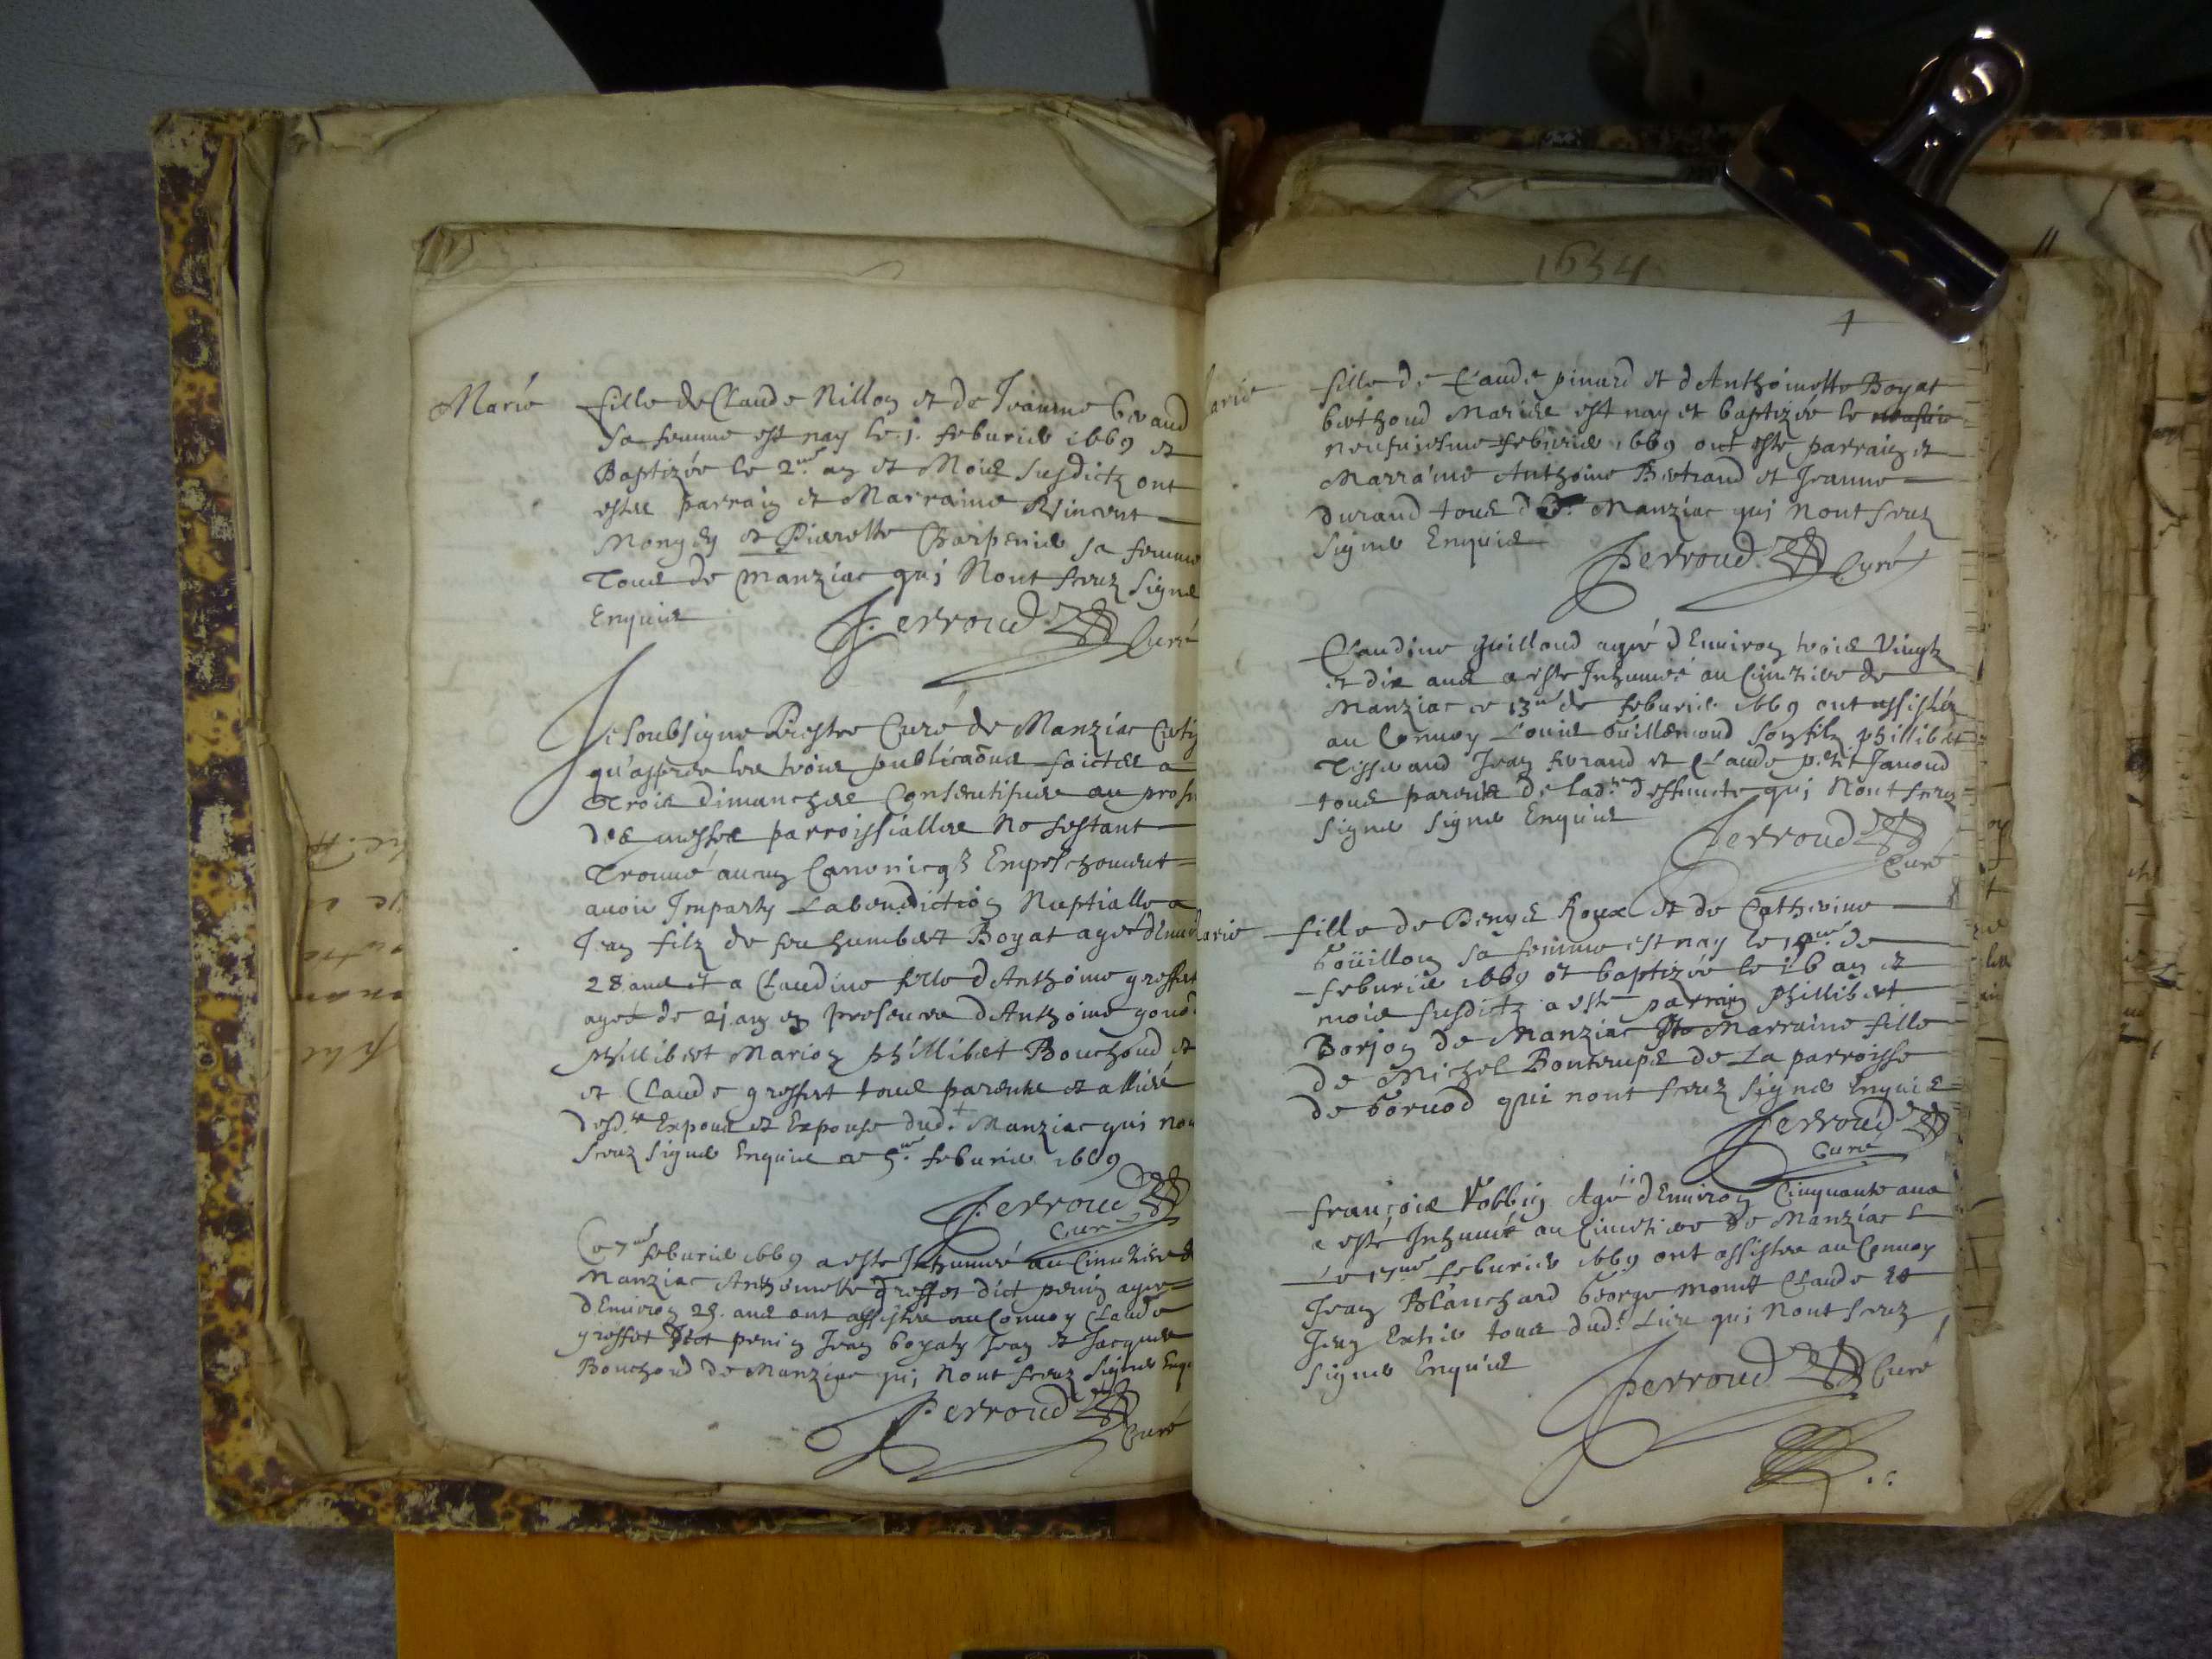 Marie fille de Claude Nillon et de Jeanne Berand
sa femme est nay le 1. feburier 1669 et
Baptizée le 2me an et Mois susdictz ont
estez parrain et Marraine Vincent
Mongin et Pierrette Charpenier sa femme
Tous de Manziac qui Nont sceuz signer
Enquis Perroud Curé
Je soubsigne Prestre Curé de Manziac Certifi
qu'appres les trois publicaōns faictes a
Trois dimanches Consecutifves au prosn
des messes parroissialles No sestant
Trouué aucung Canonicq3 Empeschement
auoir Imparty La benediction Nuptialle a
Jean filz de feu humbert Boyat agé dEnui
28 ans et a Claudine fille dAnthoine greffet
agée de 21 an en presence dAnthoine gono
phillibert Marion phillibert Bouchoud et
et Claude greffet tous parents et alliés
desd.ts Expoux et Expouse dud.t Manziac qui nont
sceuz signer Enquis ce 5.me feburier 1669
Perroud
Curé
Ce 7me feburier 1669 a este Inhumée au Cimetiere d
Manziac Anthoinette greffet dict penin agée
dEnuiron 25. ans ont assistés au Conuoy Claude
greffet dict penin Jean boyat Jean et Jacques
Bouchoud de Manziac qui Nont sceuz signer Enqu
Perroud Curé
1634
1
arie fille de Claude pinard et dAnthoinette Boyat
berthoud Mariés est nay et baptizée le
neufuiesme feburier 1669 ont este parrain et
Marraine Anthoine Bertrand et Jeanne
durand tous d Manziac qui Nont sceuz
signer Enquis
Perroud Curé
Claudine guilloud agée dEnuiron trois Vingtz
et dix ans a este Inhumée au Cimetiere de
Manziac ce 13me de feburier 1669 ont assistez
au Conuoy Louis Guillemoud son filz phillibert
Tisserand Jean durand et Claude petit Janoud
tous parents de lad.te deffuncte qui Nont sceuz
signer signer Enquis
Perroud
Curé
arie fille de Benoit Roux et de Catherine
Goüillon sa femme est nay le 14me de
feburier 1669 et baptizée le 16 an et
mois susdictz a este parrain phillibert
Borjon de Manziac Marraine fille
de Michel Bontemps de La parroisse
de Goruod qui nont sceuz signer enquis
Perroud
Curé
François Robbin Agé dEnuiron Cinquante ans
a esté Inhumé au Cimetiere de Manziac
le 17me feburier 1669 ont assistés au Conuoy
Jean Blanchard George monet Claude et
Jean tous dud.t Lieu qui Nont sceuz
signer Enquis
Perroud Curé